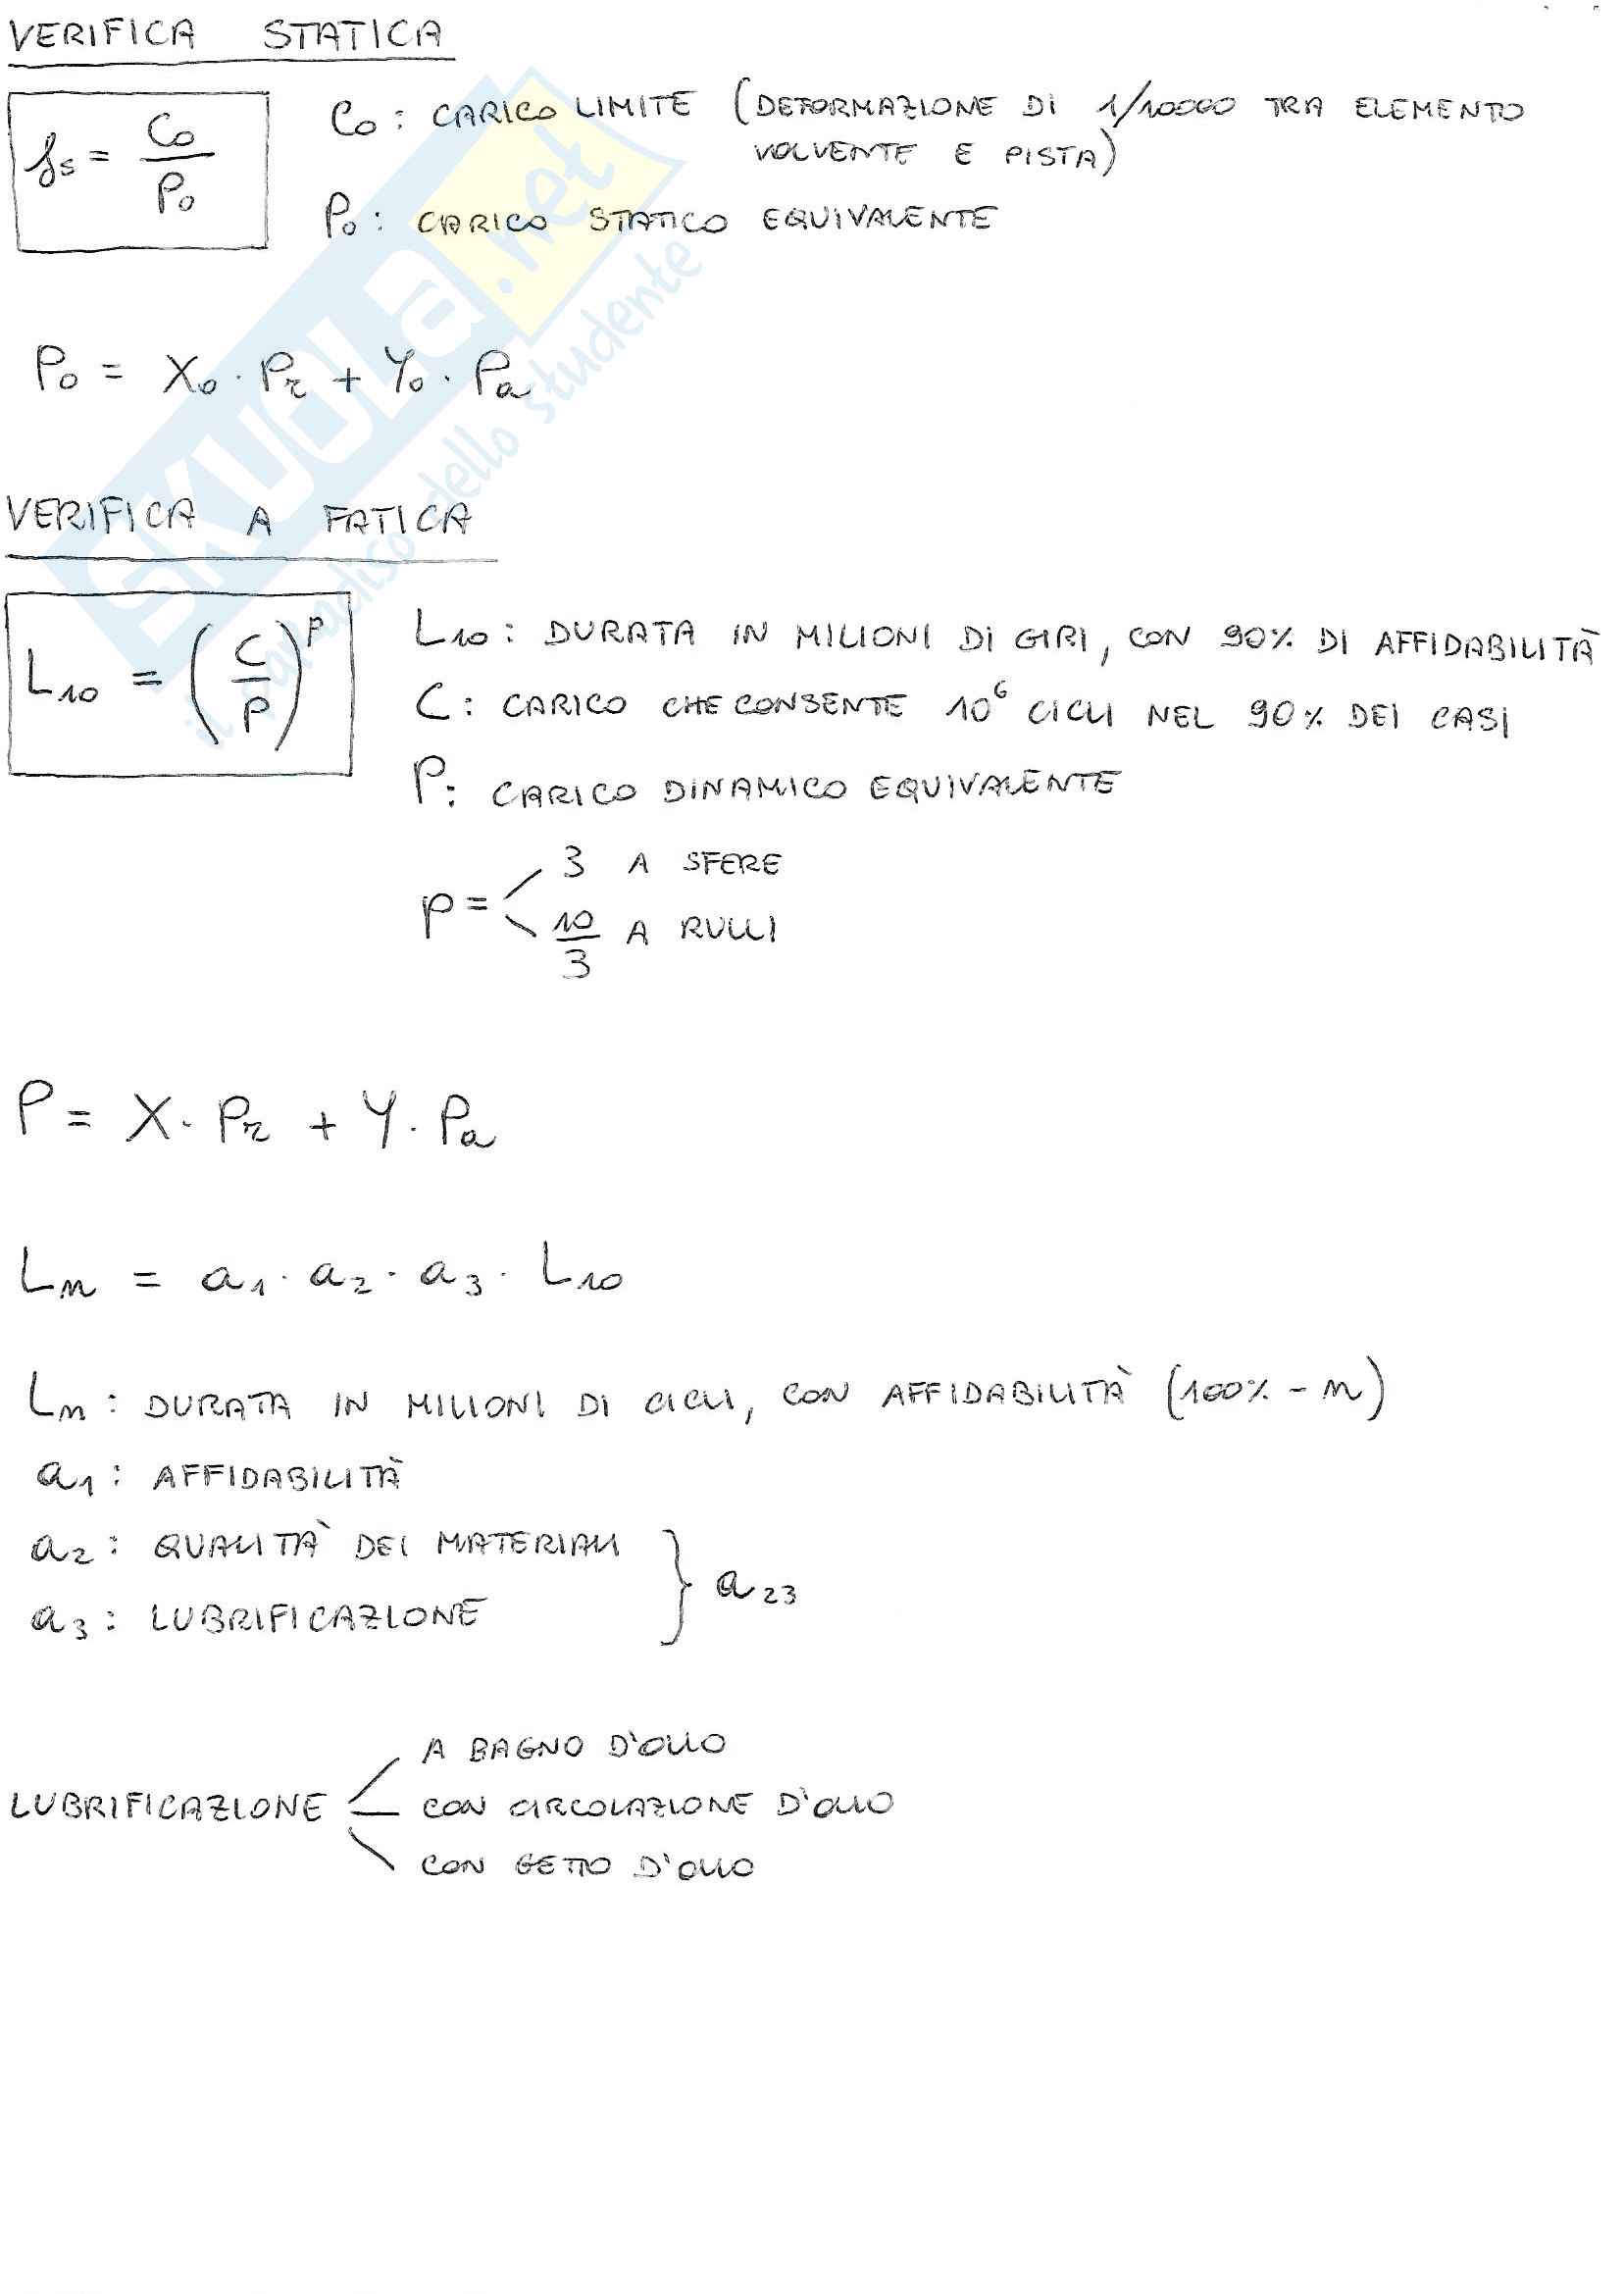 VERIFICA STATICA
fs = C0/P0
C0: CARICO LIMITE (DEFORMAZIONE DI 1/10000 TRA ELEMENTO
VOLVENTE E PISTA)
P0: CARICO STATICO EQUIVALENTE
P0 = X0 · Pr + Y0 · Pa
VERIFICA A FATICA
L10 = (C/P)^p
L10: DURATA IN MILIONI DI GIRI, CON 90% DI AFFIDABILITÀ
C: CARICO CHE CONSENTE 10^6 CICLI NEL 90% DEI CASI
P: CARICO DINAMICO EQUIVALENTE
3 A SFERE
p =
10/3 A RULLI
P = X · Pr + Y · Pa
Ln = a1 · a2 · a3 · L10
Ln: DURATA IN MILIONI DI CICLI, CON AFFIDABILITÀ (100% - n)
a1: AFFIDABILITÀ
a2: QUALITÀ DEI MATERIALI
a3: LUBRIFICAZIONE
} a23
A BAGNO D'OLIO
LUBRIFICAZIONE
CON CIRCOLAZIONE D'OLIO
CON GETTO D'OLIO
SKUOLA.net
il paradiso dello studente